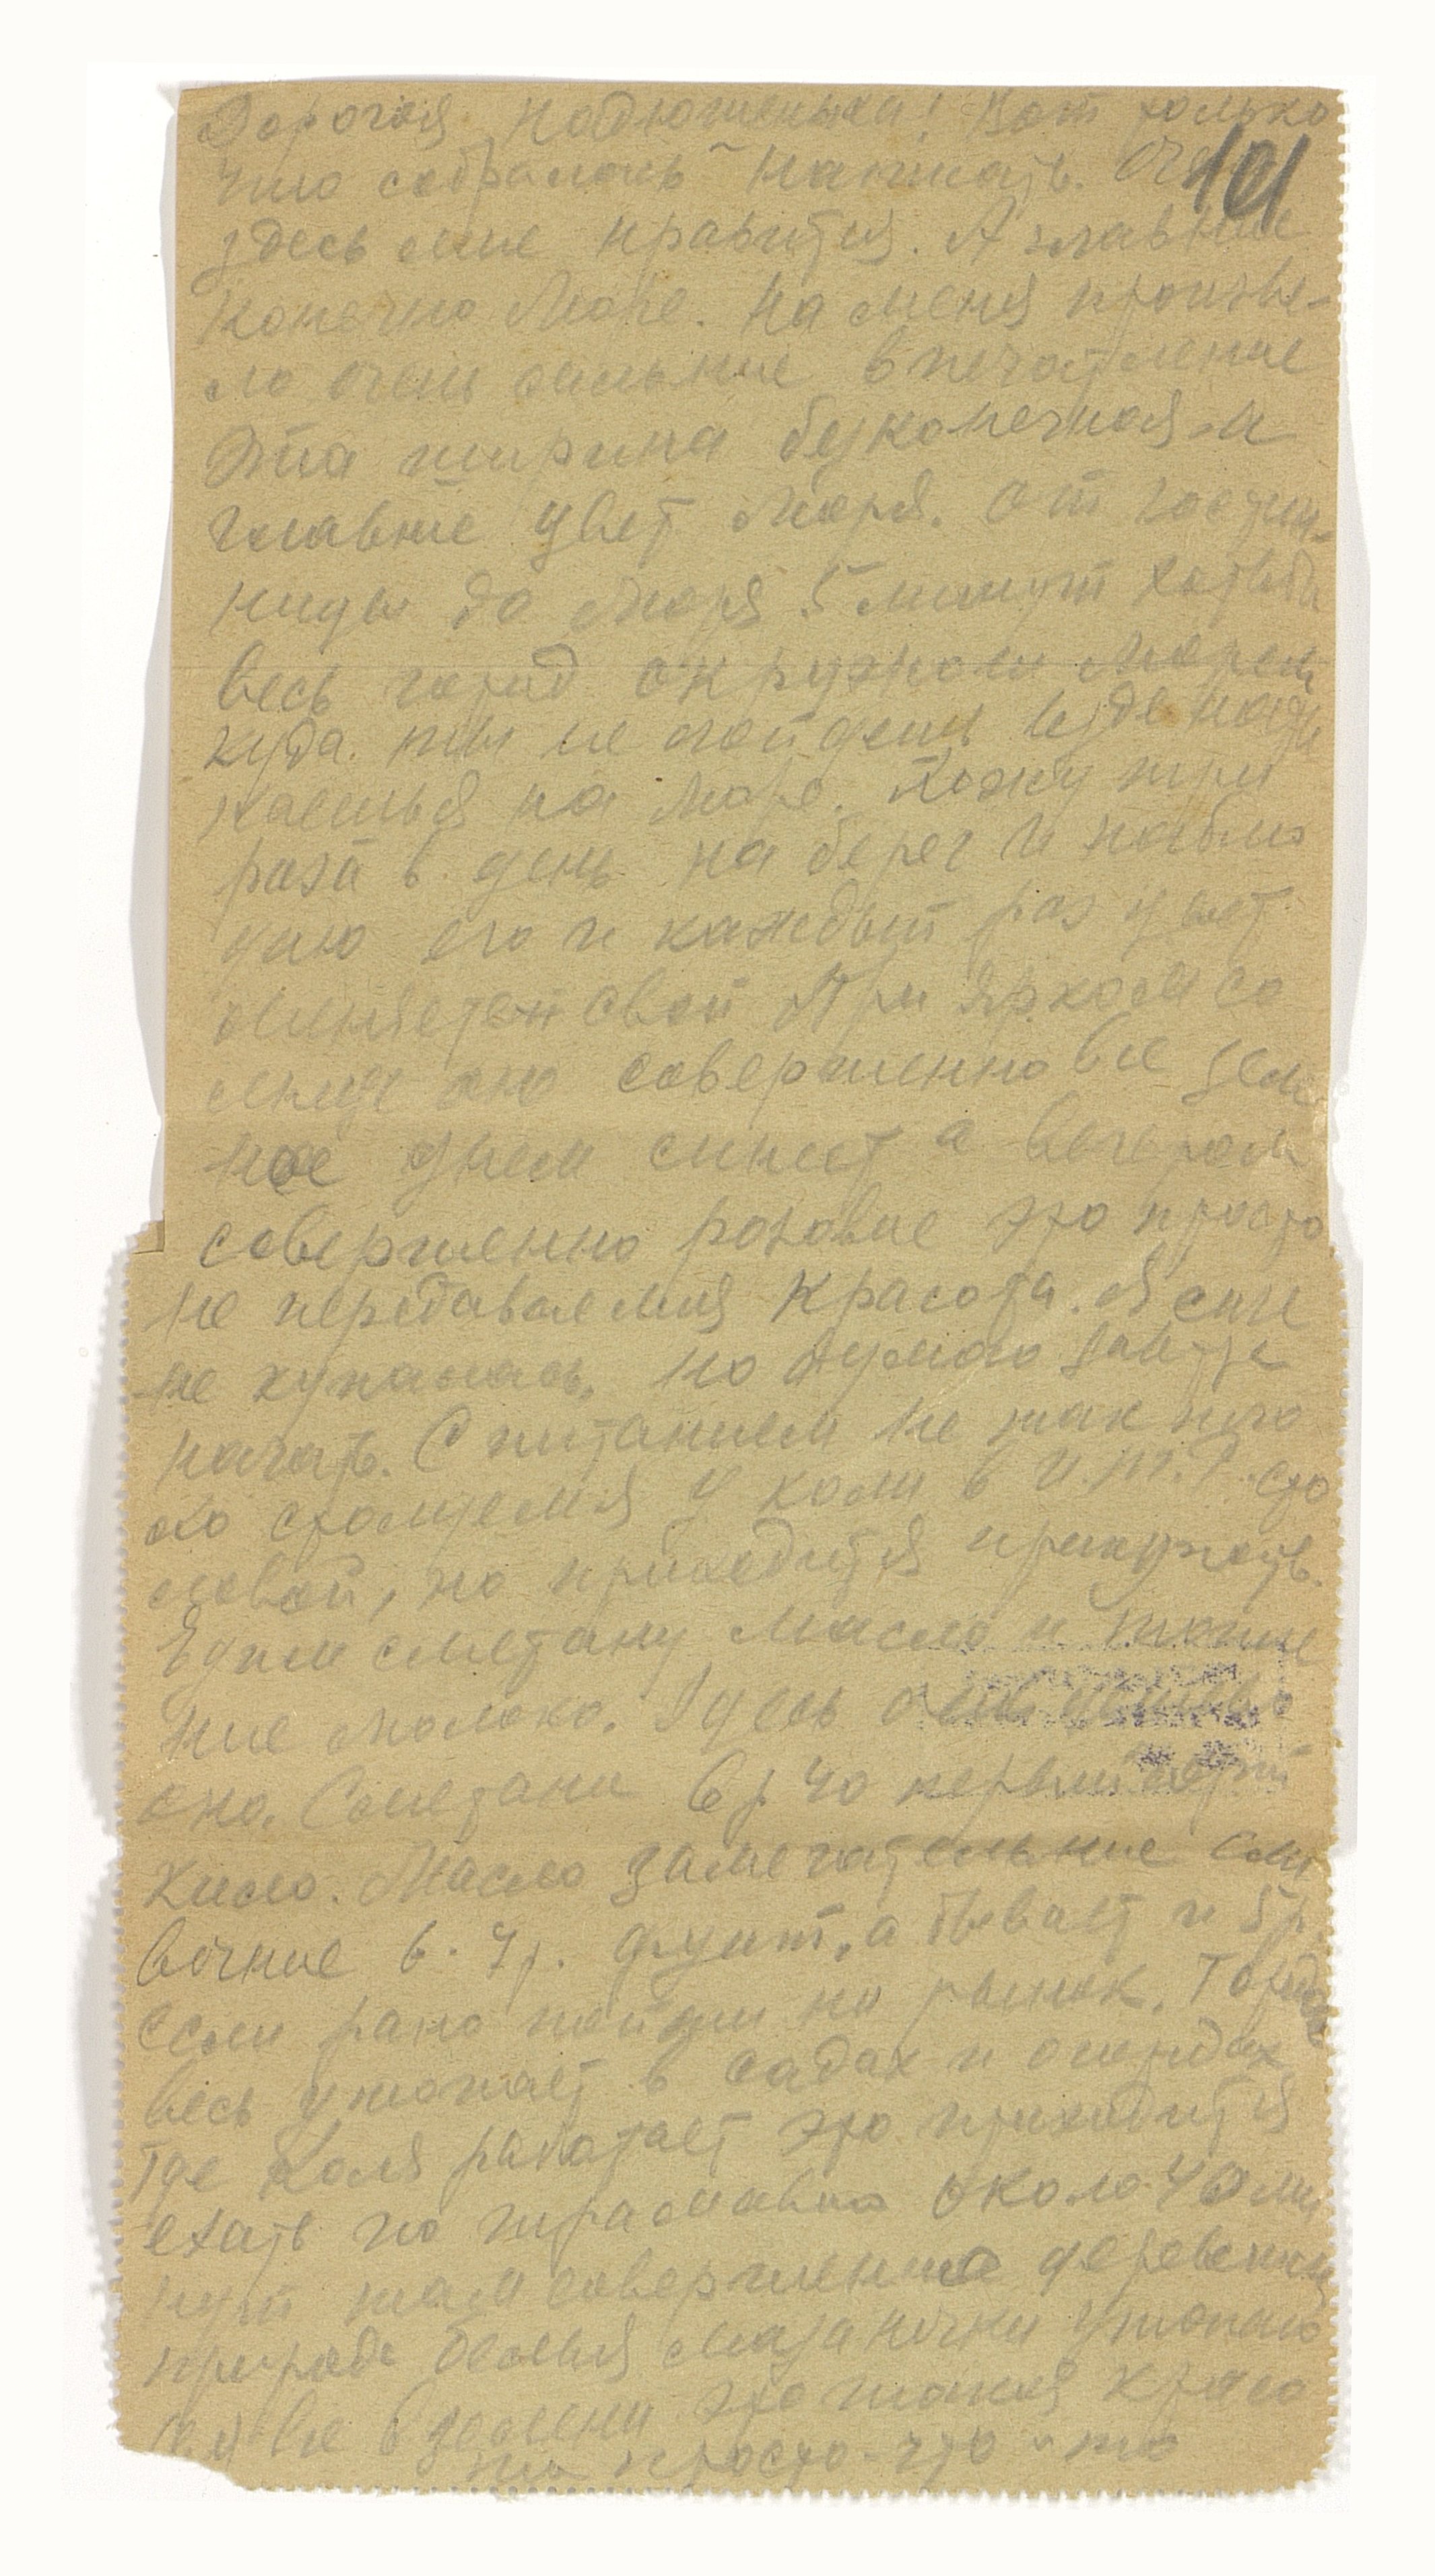 Дорогая Надюшенька! Вот только
что собралась написать.
101
здесь мне нравится. А главные
конечно Море. На меня произве-
ло очень сильные впечатление
Эта ширина безконечная и
главные цвет Моря. От гостин-
ницы до Моря 5 минут ходьбы
весь город окружон Морем
куда ты не пойдешь везде натк
каешься на Море. Хожу три
раза в день на берег и наблю
даю его и каждый раз цвет
меняется свой При ярком со
лнце оно совершенно все зел
ное днем синет а вечером
совершенно розовые это просто
не передаваемая красота. Я еще
не купалась, но думаю завтра
начать. С питанием не так пло
хо столуемся у Коли в И.Т.Р. сто
ловой, но приходится прикупать.
Едим сметану масло и
молоко. Здесь
оно. Сметана 6 р 40
кило. Масло замечательные сли
вочные 6. 7р. фунт, а бывает и 5 р
если рано пойти на рынок. Город
весь утопает в садах и огородах
Где Коля работает это приходится
ехать на трамвае около 40 ми
нут там совершенно деревенск
природа белыя мазаночки утопаю
все в зелени это такая красо
просто-что-то